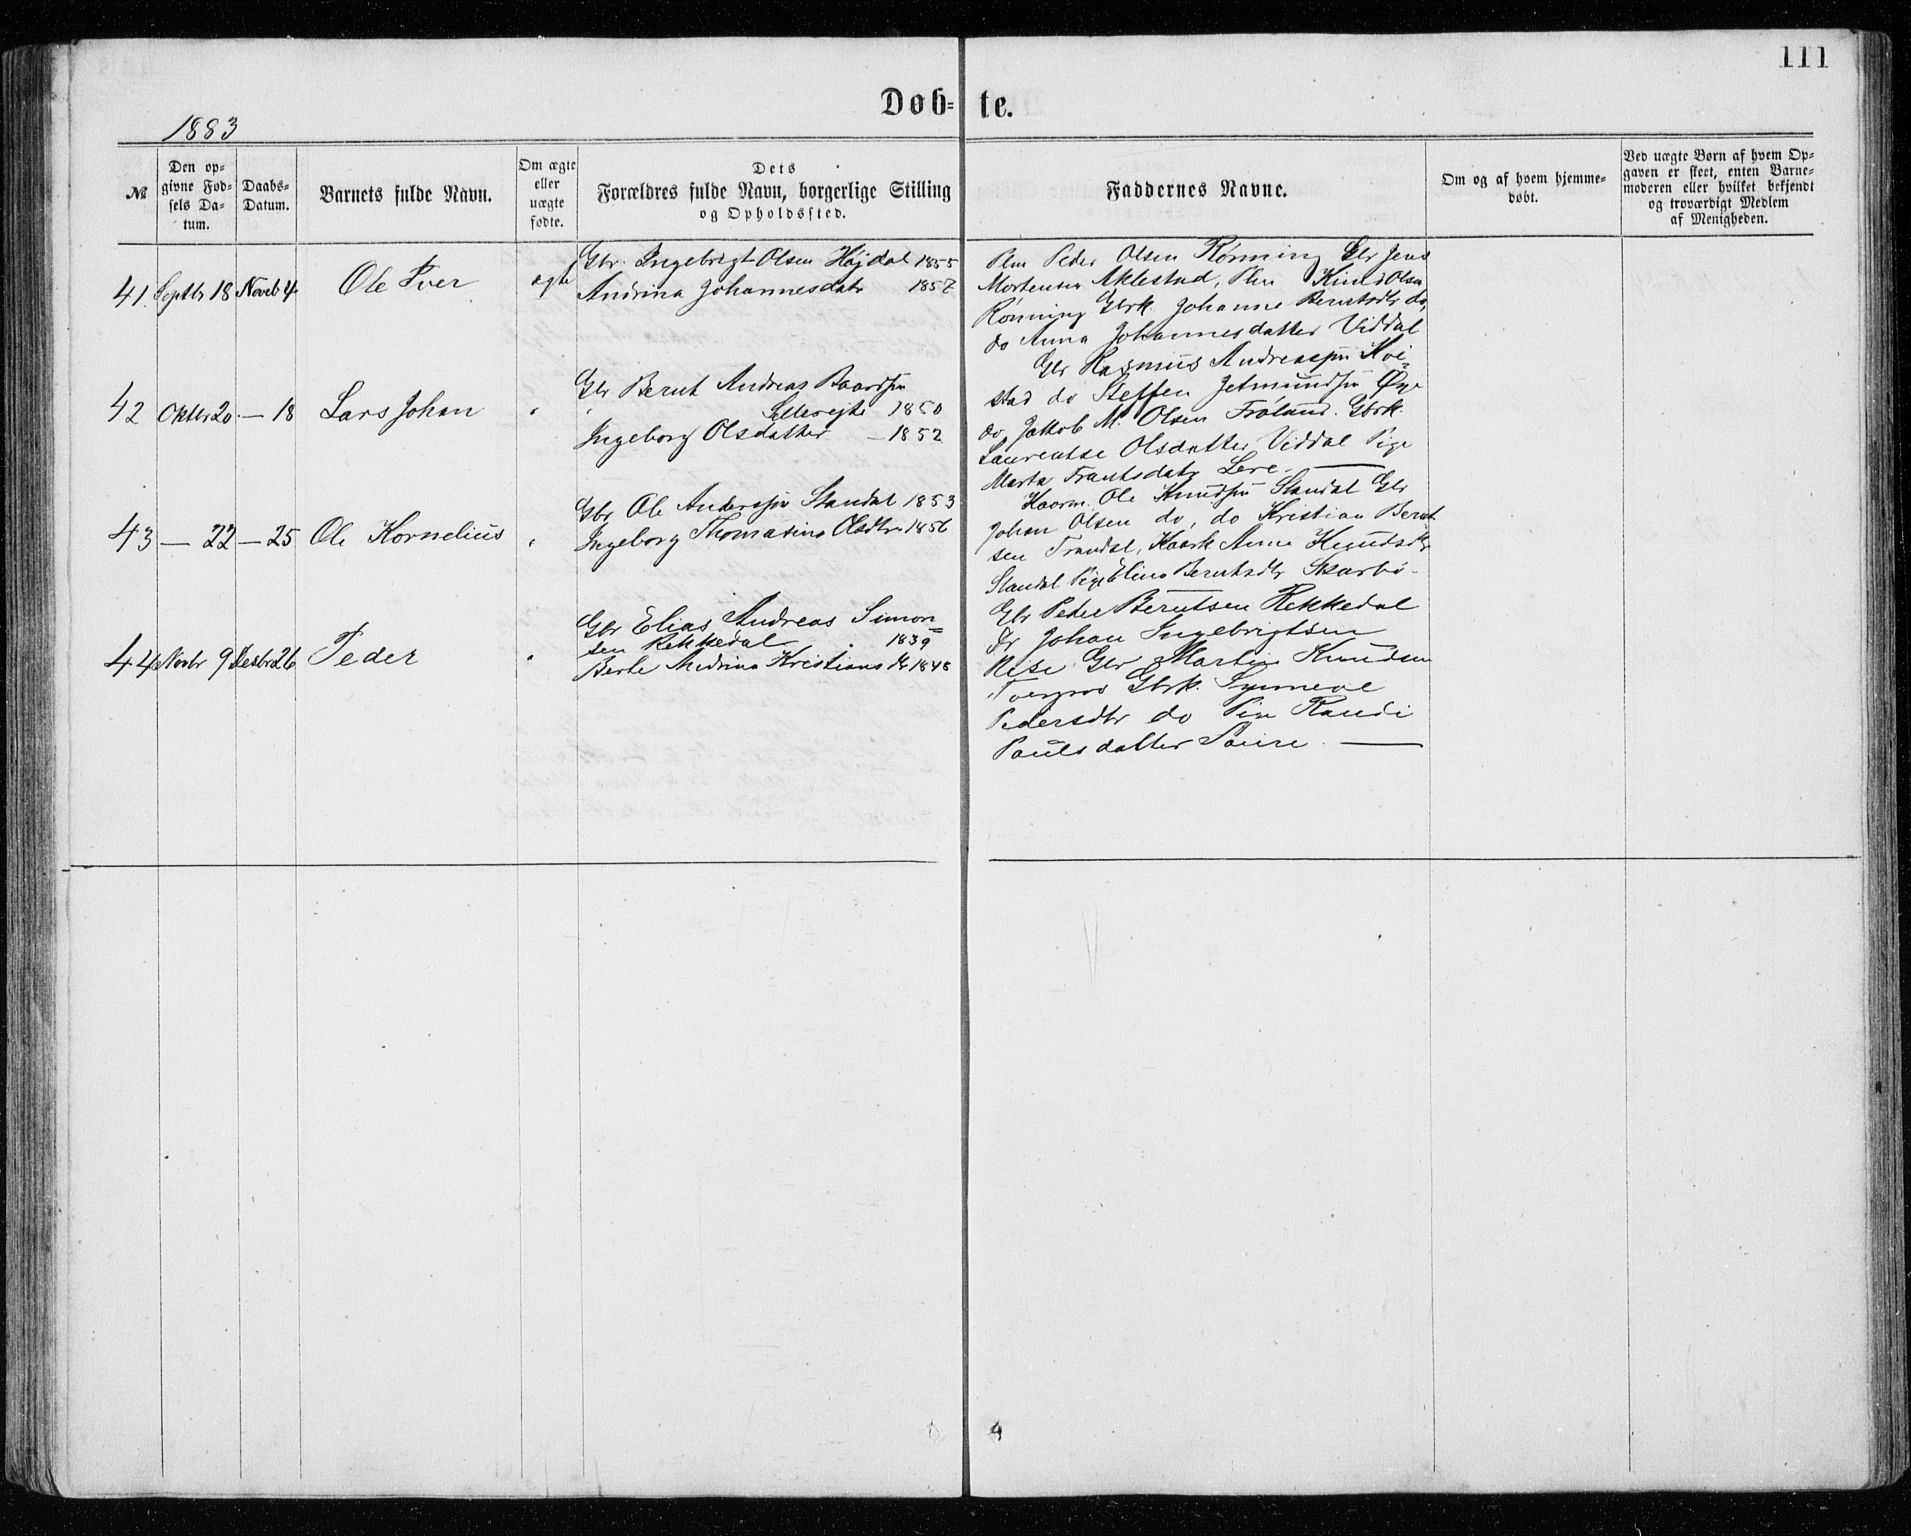 111
Døb= te.
1883
№
Den op-
givne Fød-
sels Da-
tum.
Daabs-
Datum.
Barnets fulde Navn.
Om ægte
eller
uægte
fødte.
Dets
Forældres fulde Navn, borgerlige Stilling
og Opholdssted.
Faddernes Navne.
Om og af hvem hjemme-
døbt.
Ved uægte Børn af hvem Op-
gaven er skeet, enten Barne-
moderen eller hvilket bekjendt
og troværdigt Medlem
af Menigheden.
41. Septbr 18 Noveb 4. Ole Iver ægte
Gbr. Ingebrigt Olsen Højdal 1855
Andrina Johannesdatr 1857
Plm Peder Olsen Rønning Gbr Jens
Mortensen Aklestad, Plm Knud Olsen
Rønning Gbrk. Johanne Berntsdtr do,
do Anna Johannesdatter Viddal
42 Oktbr 20. — 18 Lars Johan "
Gbr Bernt Andreas Baardsen
1850
Ingeborg Olsdatter — 1852
Gbr Rasmus Andreassen Kvi-
stad do Steffen Jetmundsen Øye
do, Jakob M. Olsen Frøland. Gbrk.
Laurentse Olsdatter Viddal Pige
Marta Frantsdatr Lere —
43 — 22 — 25 Ole Kornelius "
Gbr Ole Andersen Standal 1853
Ingeborg Thomasine Olsdtr 1856
Kaarm. Ole Knudsen Standal Gbr
Johan Olsen do, do Kristian Bernt
sen Trandal, Kaark Anne Knudsdtr
Standal Pige Eline Berntsdtr Skarbø —
44 Novbr 9 Desbr 26 Peder "
Gbr Elias Andreas Simon=
sen Rekkedal 1839
Berte Andrine Kristiansdtr 1848
Gbr Peder Berntsen Rekkedal
Fr Johan Ingebrigtsen
Rise Gbr Martin Knudsen
Gbrk. Synneve
Pedersdtr do Pige Randi
Paulsdatter —